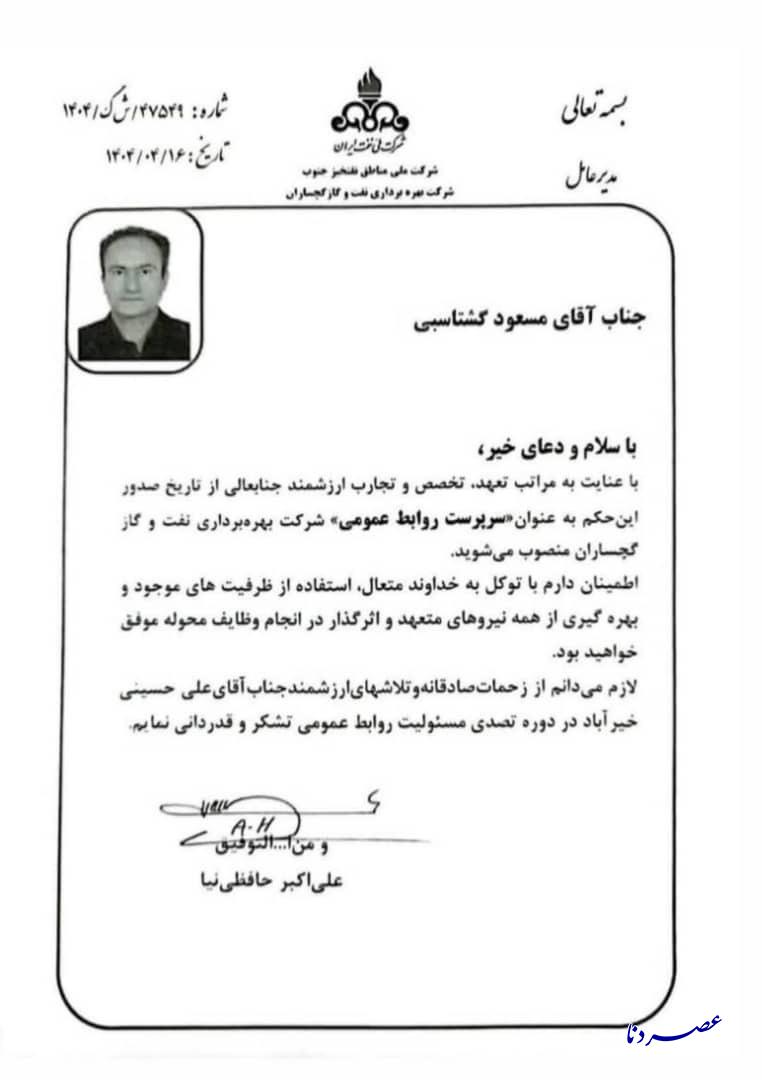 بسمه تعالی
مدیرعامل
شرکت ملی نفت ایران
شرکت ملی مناطق نفتخیز جنوب
شرکت بهره برداری نفت و گاز گچساران
شماره: ۴۷۵۴۹/ش گ/۱۴۰۴
تاریخ: ۱۴۰۴/۰۴/۱۶
جناب آقای مسعود گشتاسبی
با سلام و دعای خیر،
با عنایت به مراتب تعهد، تخصص و تجارب ارزشمند جنابعالی از تاریخ صدور
این‌حکم به عنوان«سرپرست روابط عمومی» شرکت بهره‌برداری نفت و گاز
گچساران منصوب می‌شوید.
اطمینان دارم با توکل به خداوند متعال، استفاده از ظرفیت های موجود و
بهره گیری از همه نیروهای متعهد و اثرگذار در انجام وظایف محوله موفق
خواهید بود.
لازم می‌دانم از زحمات‌صادقانه‌وتلاشهای‌ارزشمندجناب‌آقای‌علی حسینی
خیرآباد در دوره تصدی مسئولیت روابط عمومی تشکر و قدردانی نمایم.
A-H
و من‌ا...التوفیق
علی‌اکبر حافظی‌نیا
عصر دنا